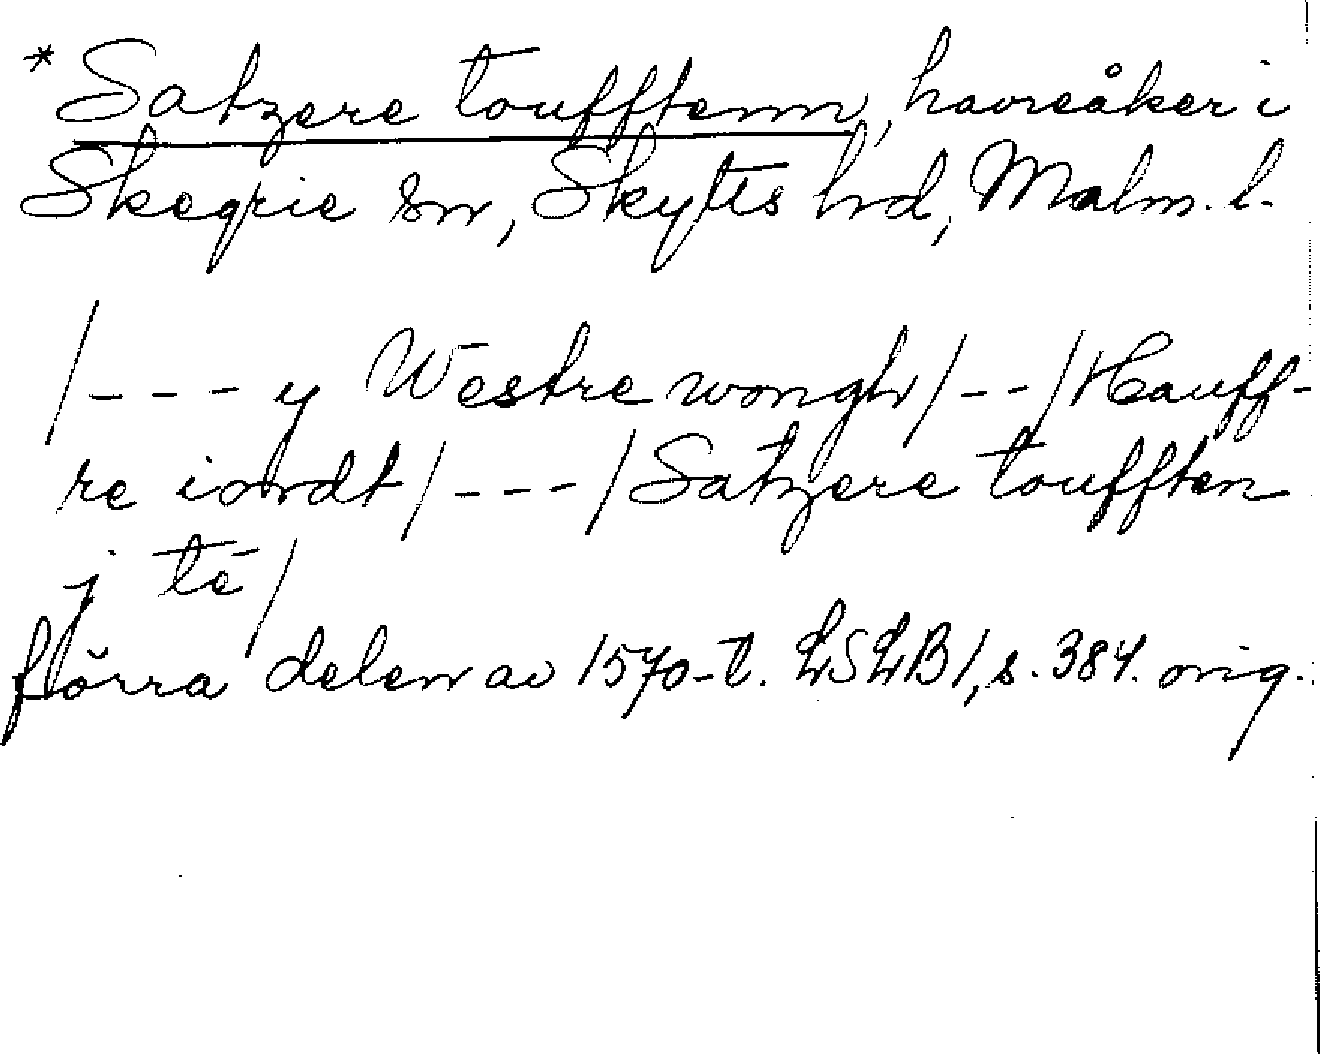 * Satzere toufftenn, havreåker i
Skegrie sn, Skytts hd, Malm. l.
/--- y Westre wongh/--/Hauff-
re iordt/---/Satzere toufften
j té/
förra delen av 1570-t. LSLB1, s. 384. orig.